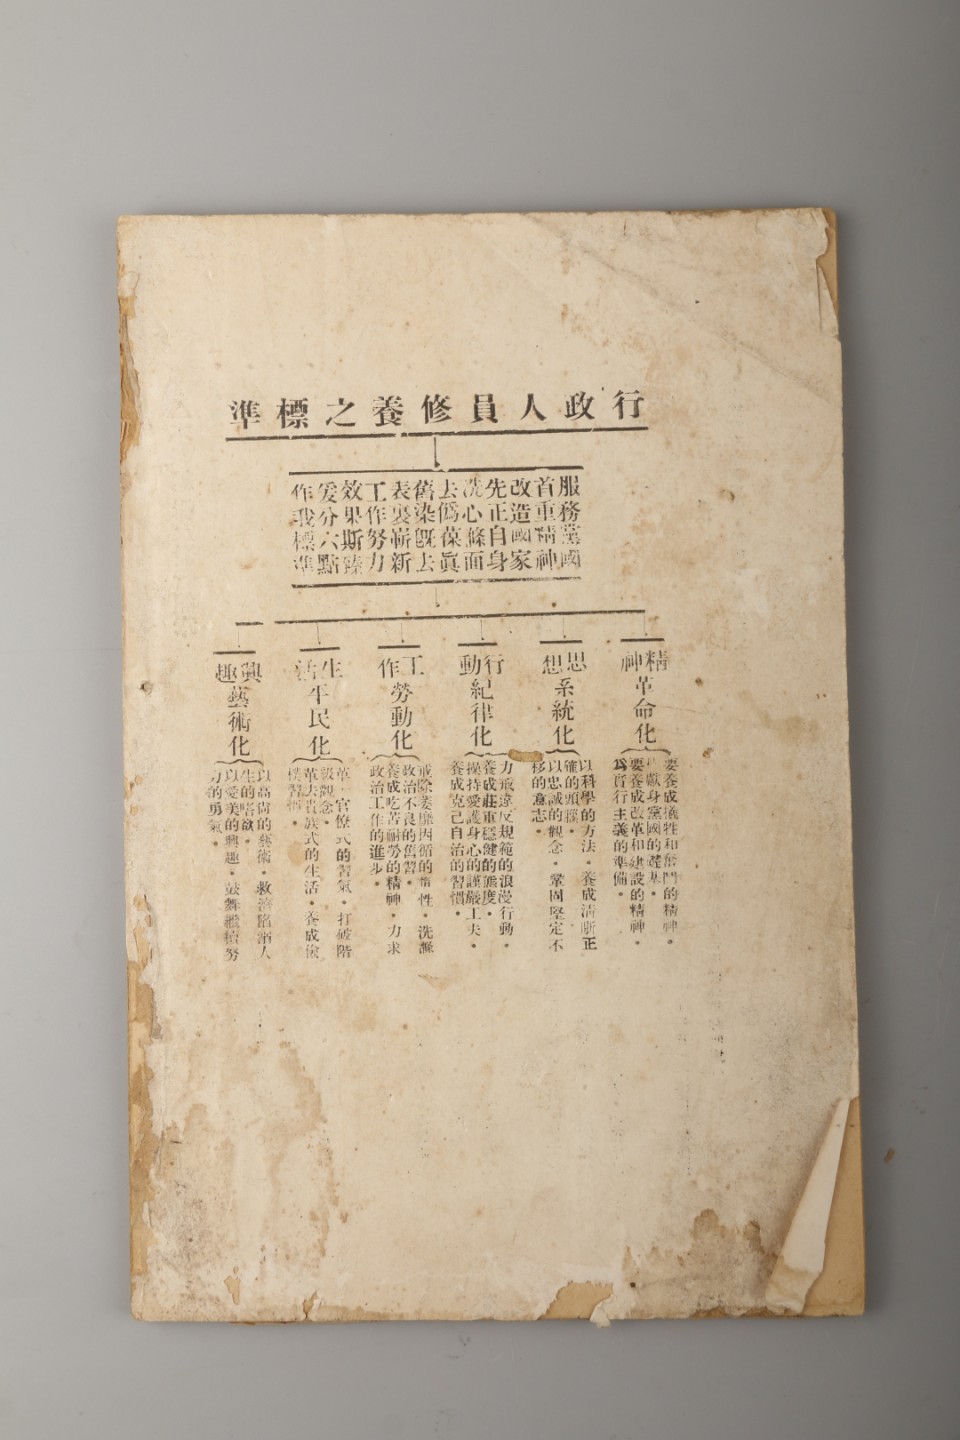 行政人員修養之標準
服務黨國
首重精神
改造國家
先正自身
洗心滌面
去僞葆眞
舊染旣去
表裏嶄新
工作努力
效果斯臻
爰分六點
作我標準
精神革命化
要養成犧牲和奮鬥的精神。
獻身黨國的
要養成改革和建設的精神。
爲實行主義的準備。
思想系統化
以科學的方法。養成淸晰正
確的頭腦。
以忠誠的觀念。鞏固堅定不
移的意志。
行動紀律化
力戒違反規範的浪漫行動。
養成莊重穩健的態度。
操持愛護身心的謹嚴工夫。
養成克己自治的習慣。
工作勞動化
戒除萎靡因循的惰性。洗滌
政治不良的舊習。
養成吃苦耐勞的精神。力求
政治工作的進步。
生活平民化
革 官僚式的習氣。打破階
級觀念。
革去貴族式的生活。養成儉
樸習慣。
興趣藝術化
以高尙的藝術。救濟陷溺人
生的嗜欲。
以愛美的興趣。鼓舞繼續努
力的勇氣。